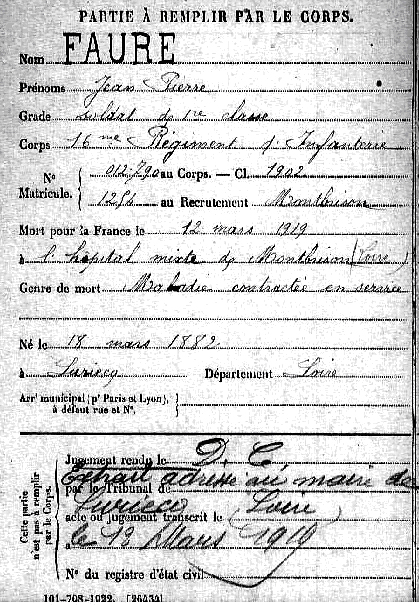 PARTIE À REMPLIR PAR LE CORPS.
Nom FAURE
Prénoms Jean Pierre
Grade Soldat de 1re classe
Corps 16me Régiment d'Infanterie
N° Matricule. { 012.790 au Corps. — Cl. 1902
1251 au Recrutement Montbrison
Mort pour la France le 12 mars 1919
à l'hôpital mixte de Montbrison (Loire)
Genre de mort Maladie contractée en service
Né le 18 mars 1882
à Luriecq Département Loire
Arrt municipal (pr Paris et Lyon), à défaut rue et N°.
Cette partie n'est pas à remplir par le Corps.
Jugement rendu le D. C.
Extrait adressé au maire de
par le Tribunal de
Luriecq (Loire)
acte ou jugement transcrit le
le 13 Mars 1919
N° du registre d'état civil
101-708-1922. [26434]